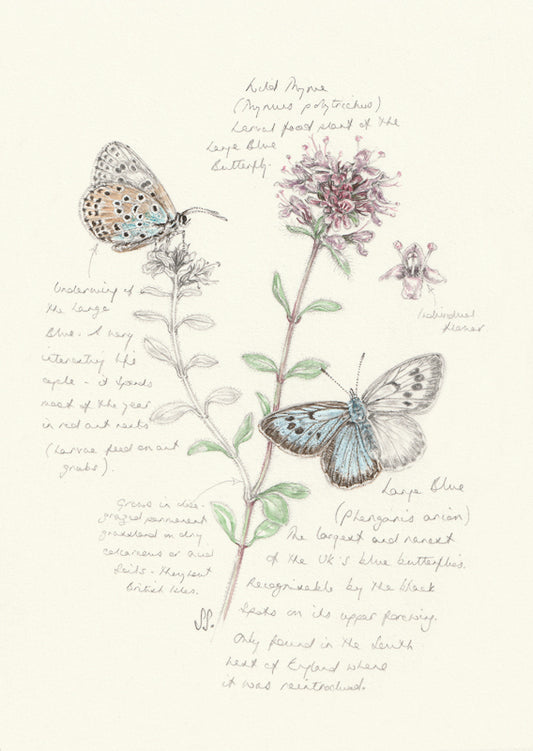 Wild Thyme
(Thymus polytrichus)
Larval food plant of the
Large Blue
Butterfly.
Underwing of
the Large
Blue. A very
interesting life
cycle - it spends
most of the year
in red ant nests
(Larvae feed on ant
grubs).
Individual
flower
Grows in close-
grazed permanent
grassland on dry
calcareous or acid
soils - throughout
British Isles.
Large Blue
(Phengaris arion)
The largest and rarest
of the UK's blue butterflies.
Recognisable by the black
spots on its upper forewing.
Only found in the South
West of England where
it was reintroduced.
SS.